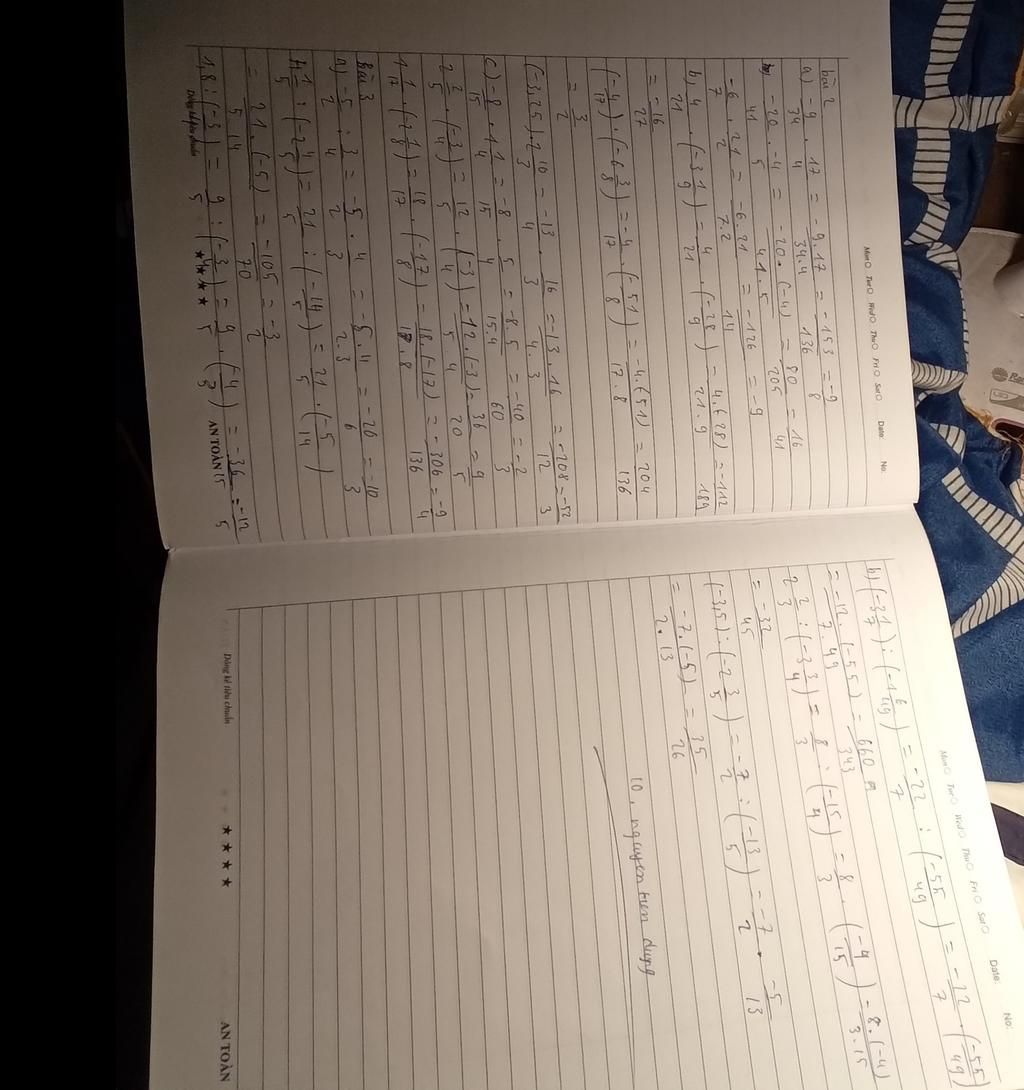 Mon Tue Wed Thu Fri Sat Date: No:
bài 2
a) -9/34 . 17/4 = -9.17/34.4 = -153/136 = -9/8
-20/41 . -4/5 = -20.(-4)/41.5 = 80/205 = 16/41
-6/7 . 21/2 = -6.21/7.2 = -126/14 = -9
b) 4/21 . (-3 1/9) = 4/21 . (-28/9) = 4.(-28)/21.9 = -112/189
= -16/27
(-4/17) . (-6 3/8) = -4/17 . (-51/8) = -4.(-51)/17.8 = 204/136
= 3/2
(-3,25) . 2 10/3 = -13/4 . 16/3 = -13.16/4.3 = -208/12 = -52/3
c) -8/15 . 1 1/4 = -8/15 . 5/4 = -8.5/15.4 = -40/60 = -2/3
2 2/5 . (-3/4) = 12/5 . (-3/4) = -12.(-3)/5.4 = 36/20 = 9/5
1 1/17 . (-2 1/8) = 18/17 . (-17/8) = 18.(-17)/17.8 = -306/136 = -9/4
Bài 3
a) -5/2 : 3/4 = -5/2 . 4/3 = -5.4/2.3 = -20/6 = -10/3
4 1/5 : (-2 4/5) = 21/5 : (-14/5) = 21/5 . (-5/14)
= 21/5 . (-5)/14 = -105/70 = -3/2
1,8 : (-3/4) = 9/5 : (-3/4) = 9/5 . (-4/3) = -36/15 = -12/5
Dòng kẻ tiêu chuẩn ★★★★ AN TOÀN
Mon Tue Wed Thu Fri Sat Date: No:
b) (-3 1/7) : (-1 6/49) = -22/7 : (-55/49) = -22/7 . (-55/49)
= -12.(-55)/7.49 = 660/343
2 2/3 : (-3 3/4) = 8/3 : (-15/4) = 8/3 . (-4/15) = 8.(-4)/3.15
= -32/45
(-3,5) : (-2 3/5) = -7/2 : (-13/5) = -7/2 . -5/13
= -7.(-5)/2.13 = 35/26
10, nguyen tien dung
Dòng kẻ tiêu chuẩn ★★★★ AN TOÀN